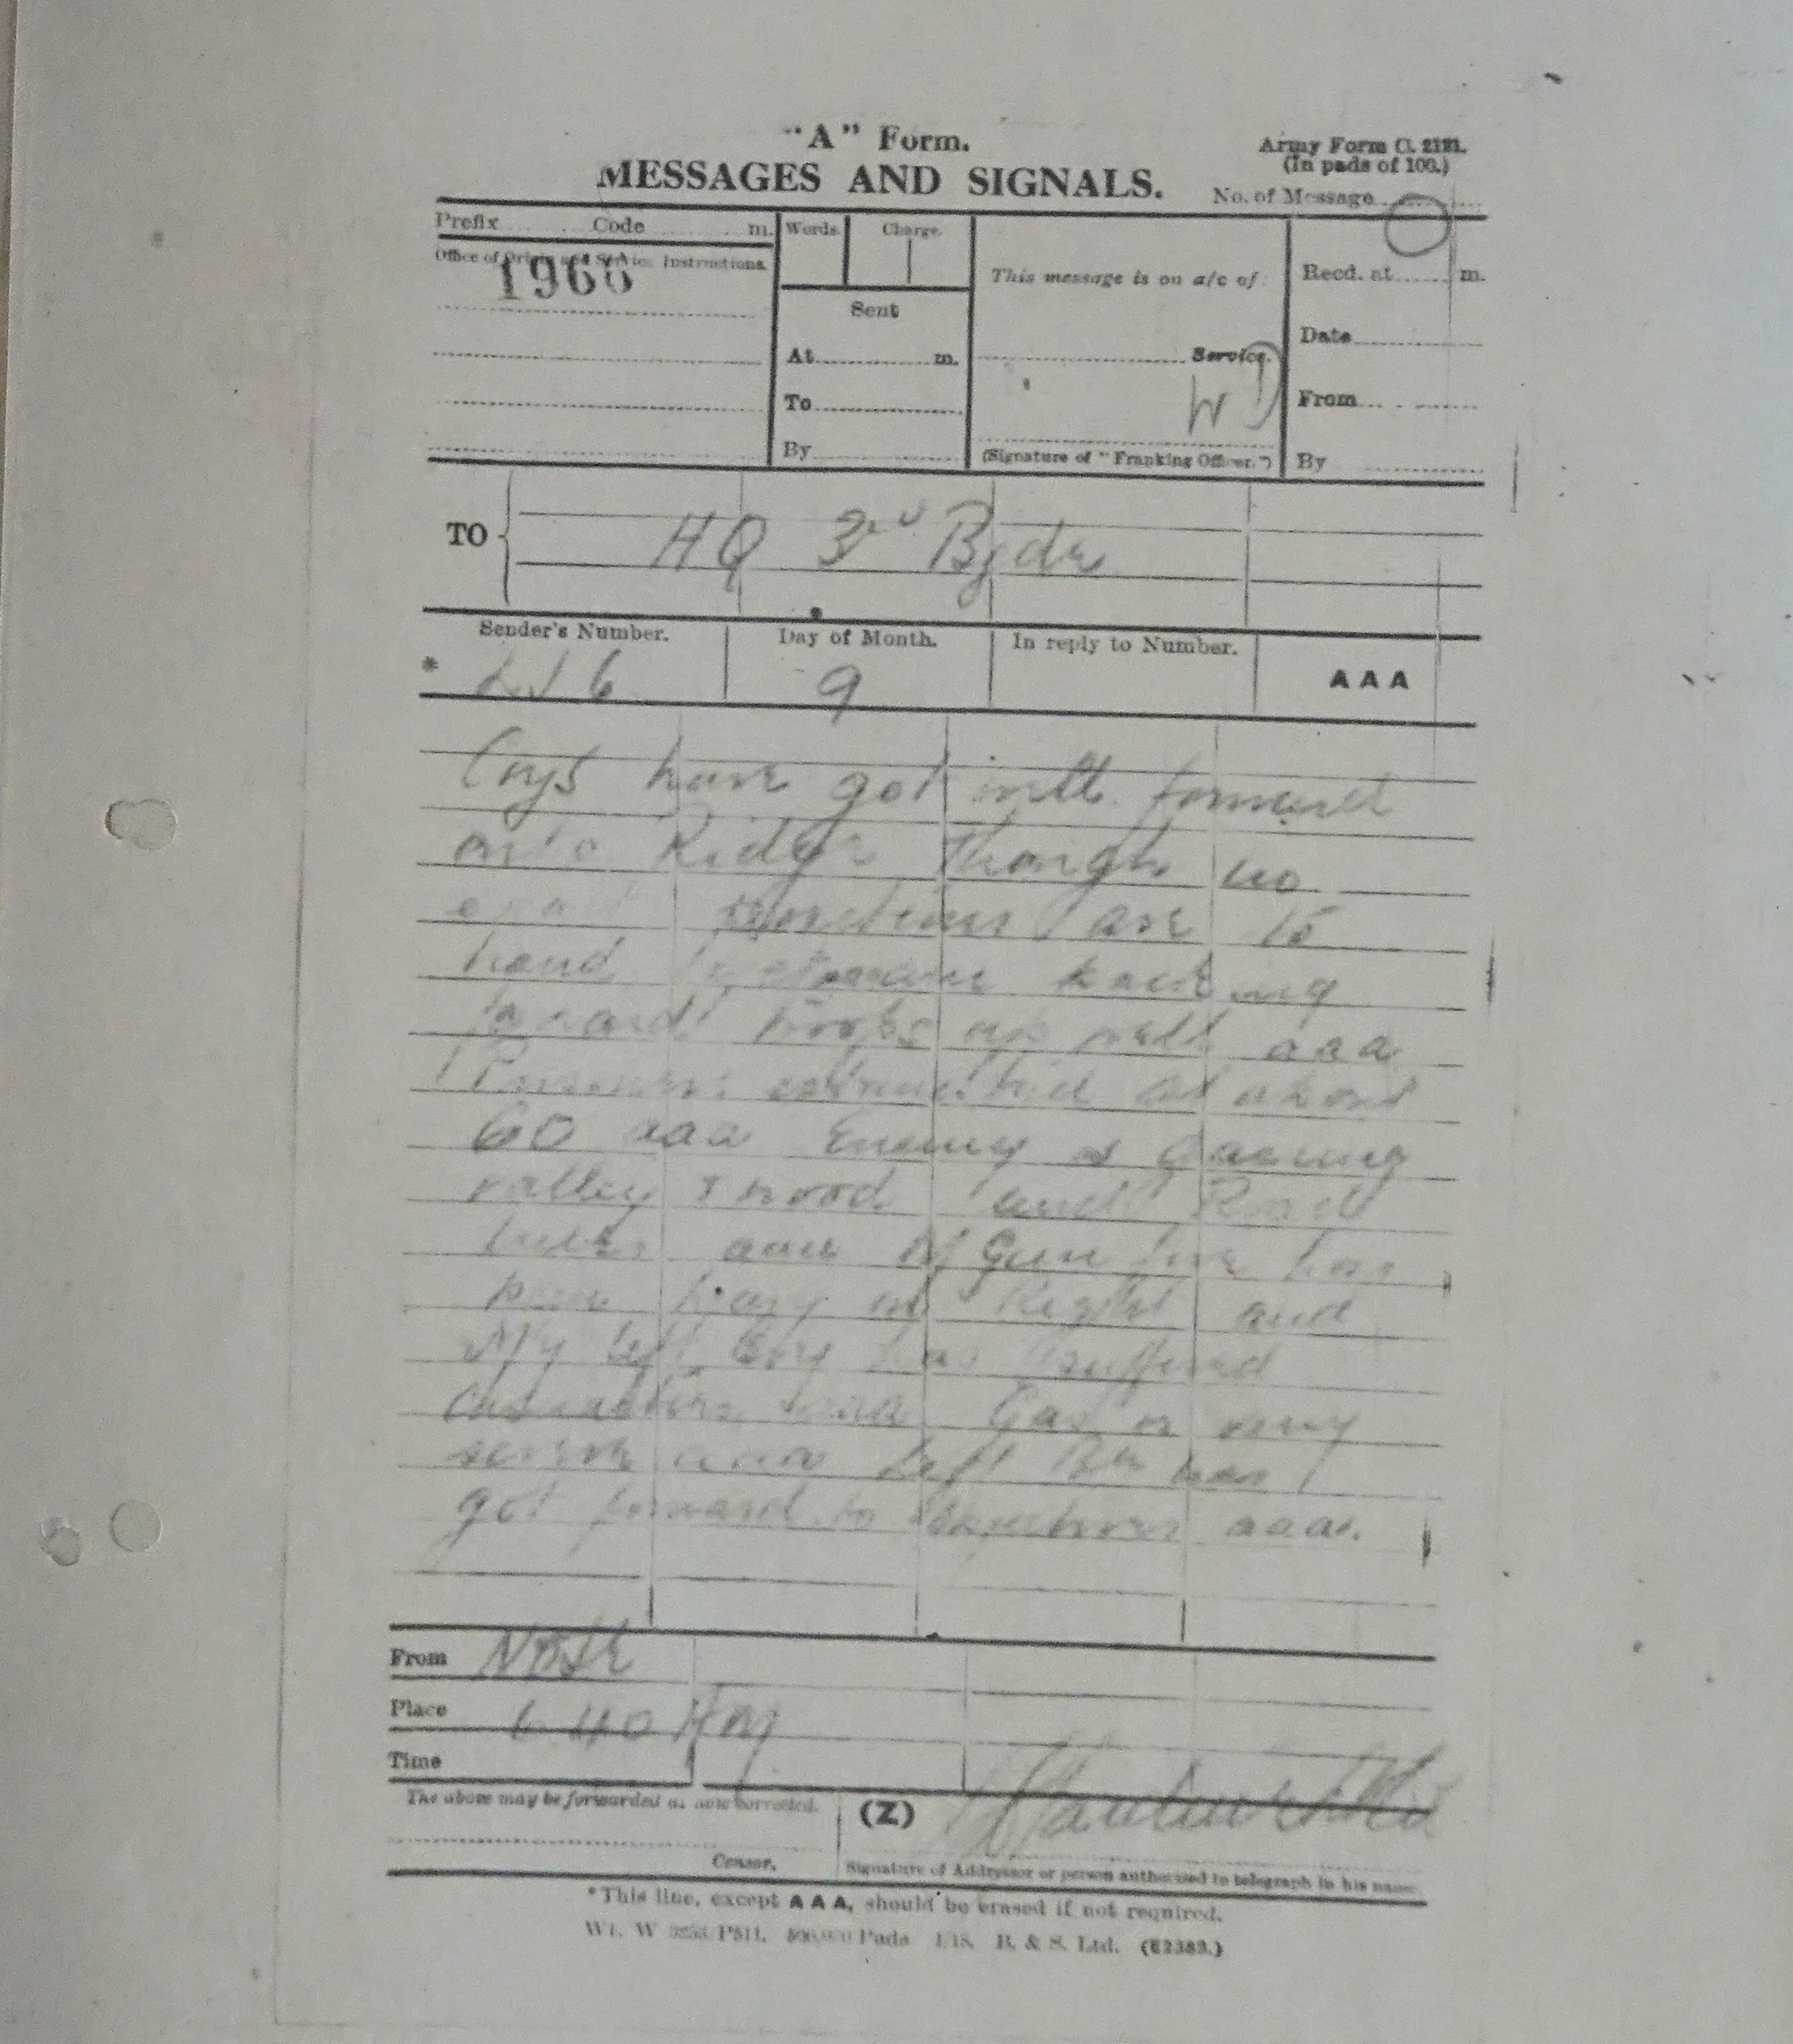 "A" Form.
MESSAGES AND SIGNALS.
Army Form C. 2121.
(In pads of 100.)
No. of Message
Prefix Code m.
Words. Charge.
Office of Origin and Service Instructions.
1966
This message is on a/c of:
Recd. at m.
Sent
Date
At m.
Service.
To
From
By
(Signature of "Franking Officer.")
By
TO
HQ 3rd Bgde
Sender's Number.
Day of Month.
In reply to Number.
* LJ 6
9
AAA
Coys have got well forward
onto Ridge though no
exact positions are to
hand
troops up well aaa
Prisoners estimated at about
60 aaa Enemy is gassing
valley & wood and Road
aaa M Gun fire has
been heavy on Right and
My left Coy has suffered
Casualties aaa Gas is very
severe aaa Left Bn has
got forward to objectives aaa.
From
Place
6 40
Time
The above may be forwarded as now corrected.
(Z)
Censor.
Signature of Addressor or person authorised to telegraph in his name.
*This line, except AAA, should be erased if not required.
Wt. W 3253/P511. 500,000 Pads 1/18. B. & S. Ltd. (E2389.)